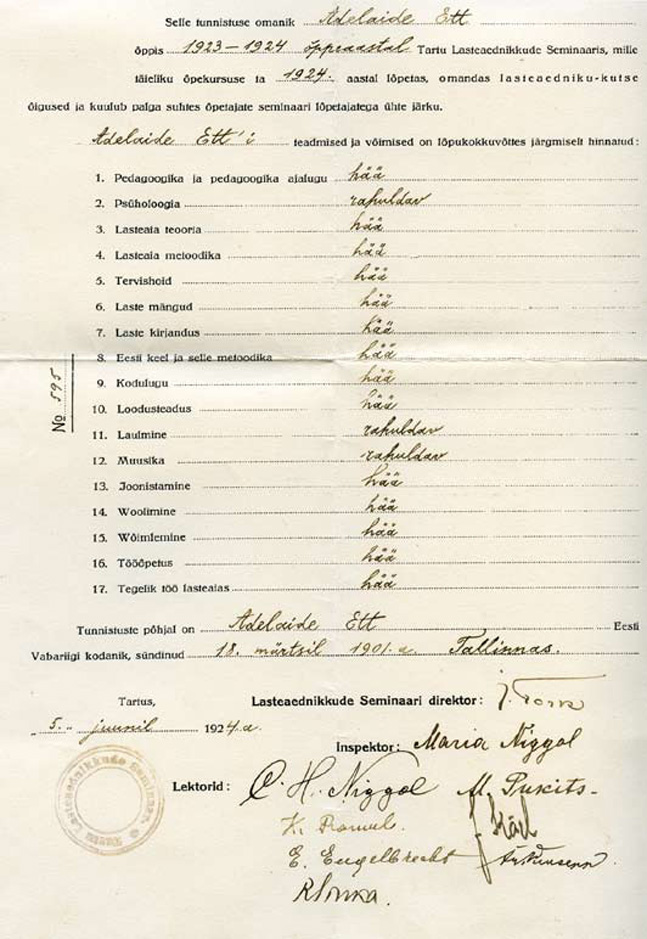 Selle tunnistuse omanik Adelaide Ett
õppis 1923–1924 õppeaastal Tartu Lasteaednikkude Seminaris, mille
täieliku õpekursuse ta 1924. aastal lõpetas, omandas lasteaedniku-kutse
õigused ja kuulub palga suhtes õpetajate seminari lõpetajatega ühte järku.
Adelaide Ett'i teadmised ja võimised on lõpukokkuvõttes järgmiselt hinnatud:
1. Pedagoogika ja pedagoogika ajalugu hää
2. Psüholoogia rahuldav
3. Lasteaia teooria hää
4. Lasteaia metoodika hää
5. Tervishoid hää
6. Laste mängud hää
7. Laste kirjandus hää
8. Eesti keel ja selle metoodika hää
9. Kodulugu hää
No 595
10. Loodusteadus hää
11. Laulmine rahuldav
12. Muusika rahuldav
13. Joonistamine hää
14. Woolimine hää
15. Wõimlemine hää
16. Tööõpetus hää
17. Tegelik töö lasteaias hää
Tunnistuste põhjal on Adelaide Ett Eesti
Vabariigi kodanik, sündinud 18. märtsil 1901. a. Tallinnas.
Tartus, Lasteaednikkude Seminaari direktor:
5. juunil 1924. a.
Inspektor: Maria Niggol
Lektorid: C. H. Niggol M. Pukits
K. Ramul. J. Kärt
E. Engelbrecht
Tartu Lasteaednikkude Seminar